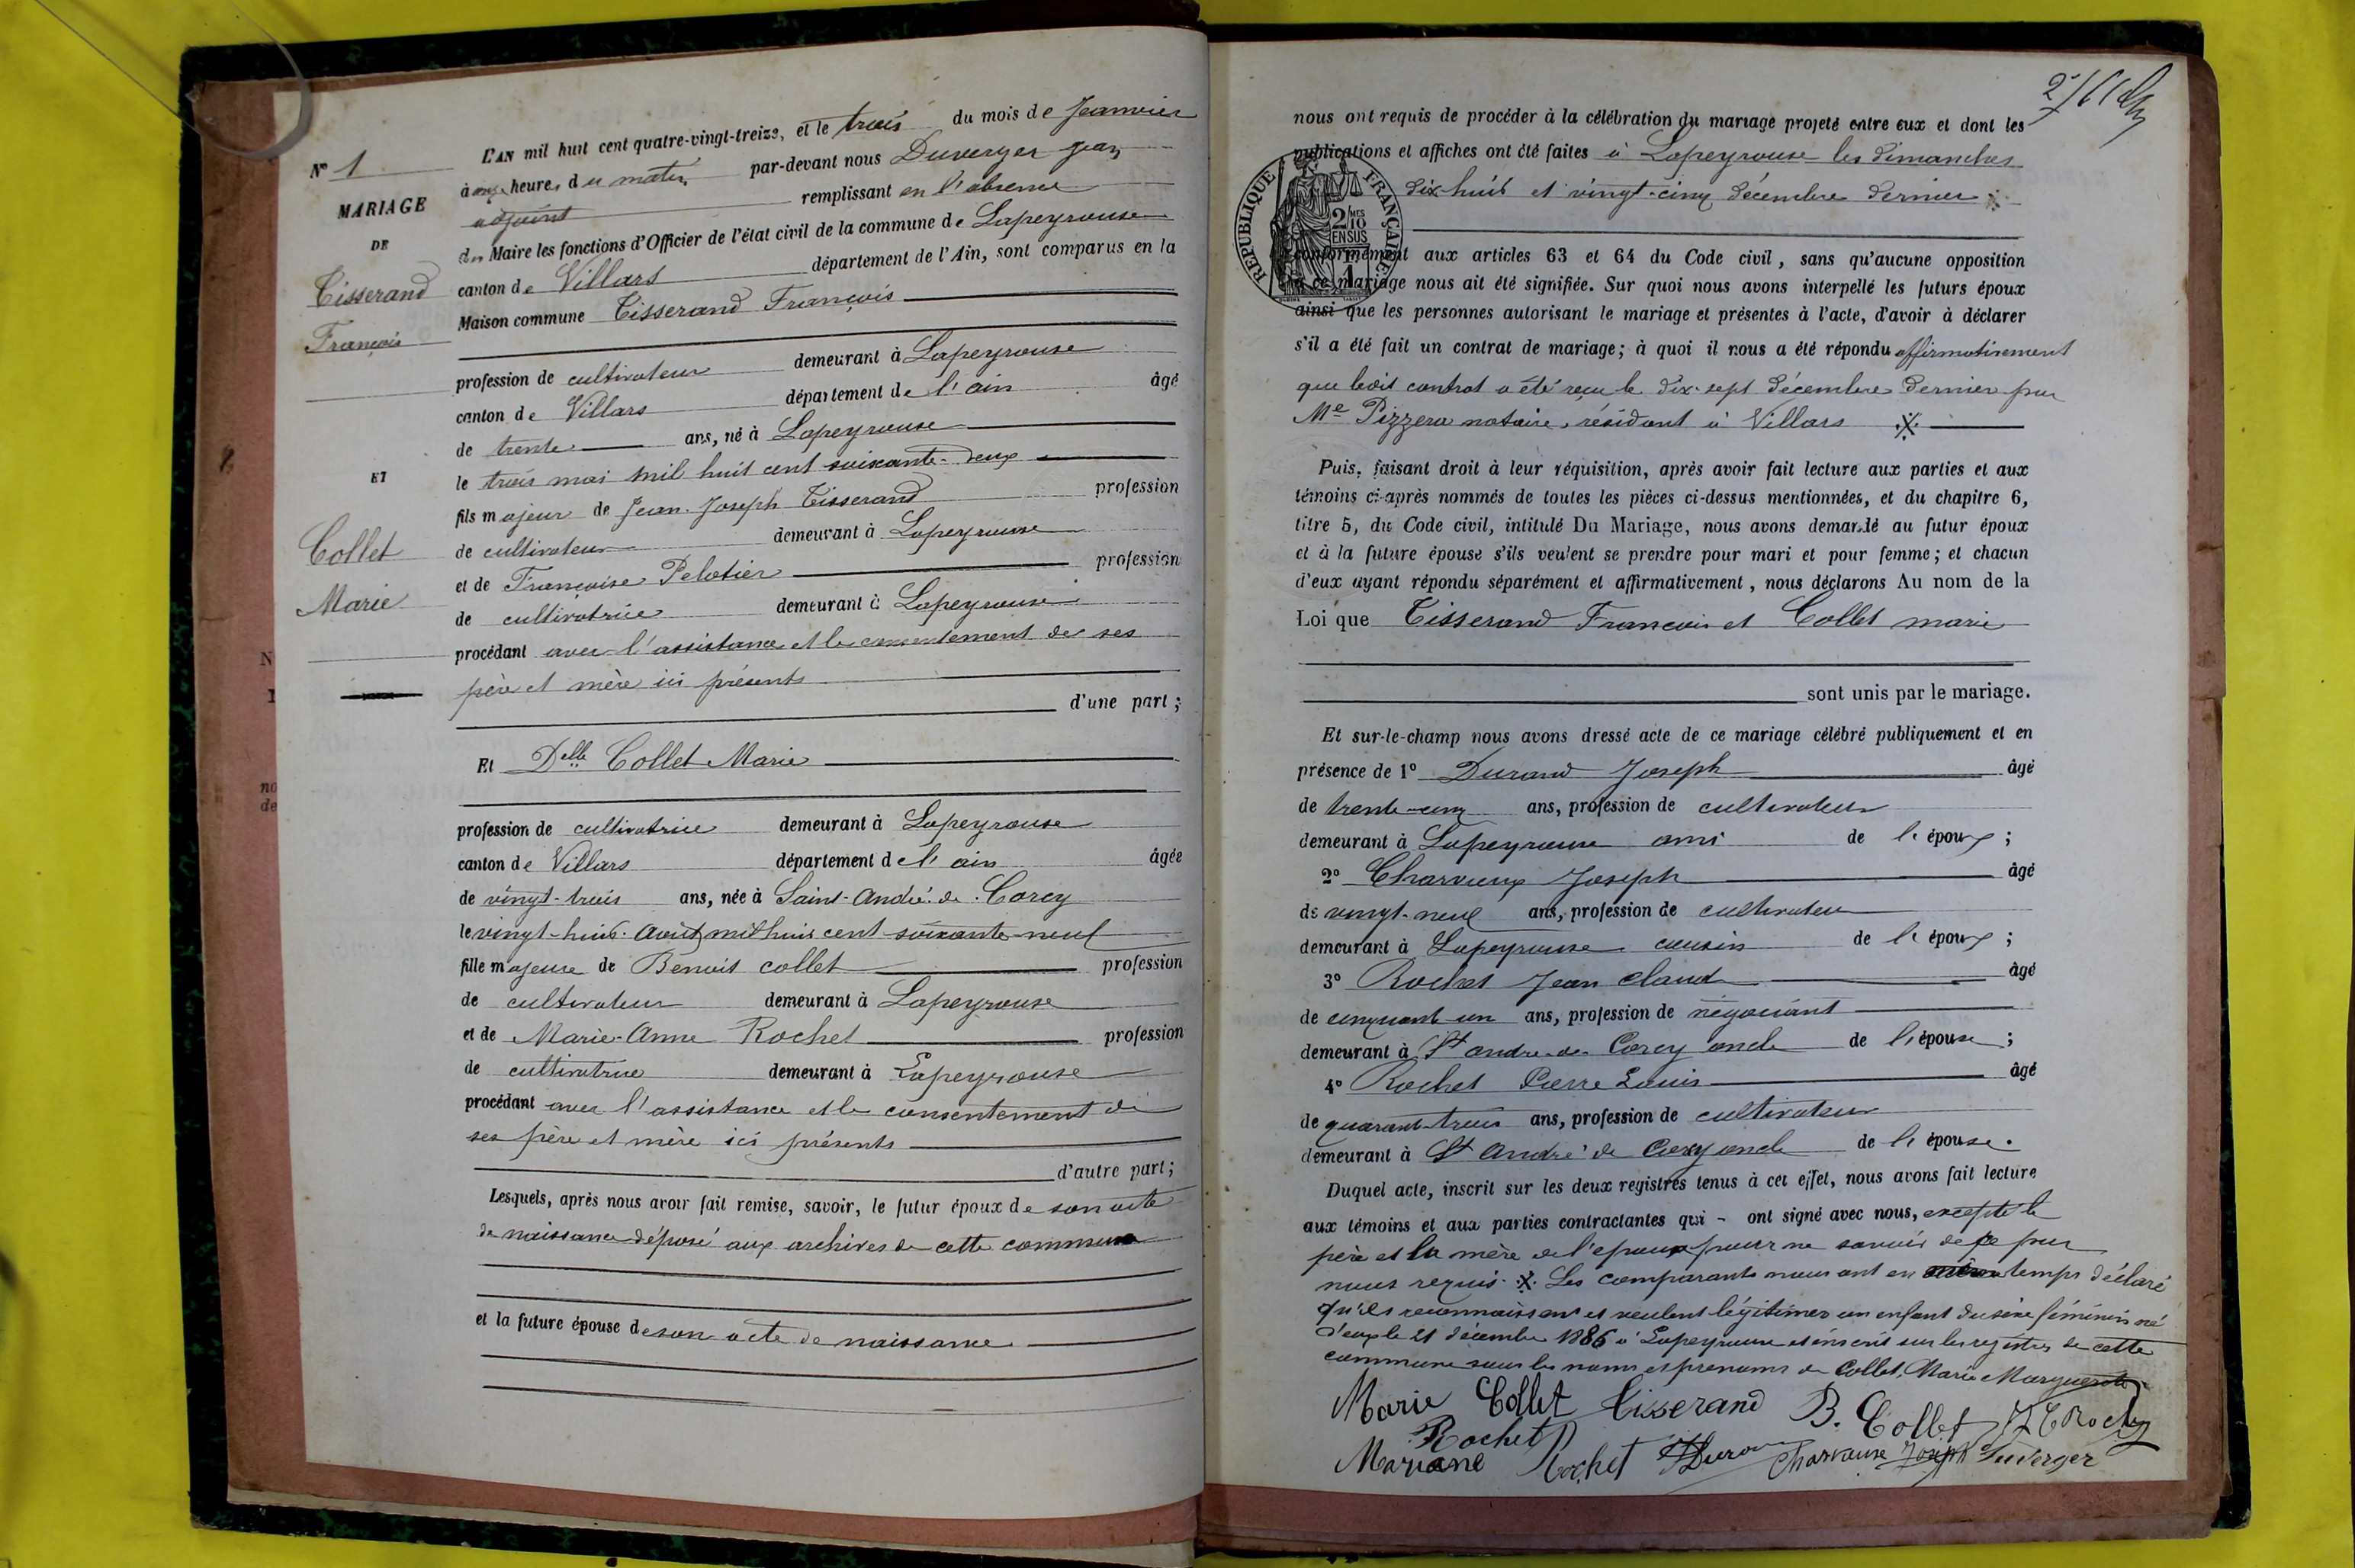 N° 1
MARIAGE
DE
Tisserand
François
ET
Collet
Marie
L'AN mil huit cent quatre-vingt-treize, et le trois du mois de Janvier
à onze heures du matin par-devant nous Duverger Jean
adjoint remplissant en l'absence
du Maire les fonctions d'Officier de l'état civil de la commune de Lapeyrouse
canton de Villars département de l'Ain, sont comparus en la
Maison commune Tisserand François
profession de cultivateur demeurant à Lapeyrouse
canton de Villars département de l'ain âgé
de trente ans, né à Lapeyrouse
le trois mai mil huit cent soixante-deux
fils majeur de Jean-Joseph Tisserand profession
de cultivateur demeurant à Lapeyrouse
et de Françoise Pelotier profession
de cultivatrice demeurant à Lapeyrouse
procédant avec l'assistance et le consentement de ses
père et mère ici présents
d'une part ;
Et Delle Collet Marie
profession de cultivatrice demeurant à Lapeyrouse
canton de Villars département de l'ain âgée
de vingt-trois ans, née à Saint-André-de-Corcy
le vingt-huit août mil huit cent soixante-neuf
fille majeure de Benoit collet profession
de cultivateur demeurant à Lapeyrouse
et de Marie-Anne Rochet profession
de cultivatrice demeurant à Lapeyrouse
procédant avec l'assistance et le consentement de
ses père et mère ici présents
d'autre part ;
Lesquels, après nous avoir fait remise, savoir, le futur époux de son acte
de naissance déposé aux archives de cette commune
et la future épouse de son acte de naissance
nous ont requis de procéder à la célébration du mariage projeté entre eux et dont les
publications et affiches ont été faites à Lapeyrouse les dimanches
dix-huit et vingt-cinq décembre dernier
RÉPUBLIQUE FRANÇAISE
2/10 MES
EN SUS
1
conformément aux articles 63 et 64 du Code civil, sans qu'aucune opposition
à ce mariage nous ait été signifiée. Sur quoi nous avons interpellé les futurs époux
ainsi que les personnes autorisant le mariage et présentes à l'acte, d'avoir à déclarer
s'il a été fait un contrat de mariage ; à quoi il nous a été répondu affirmativement
que ledit contrat a été reçu le dix-sept décembre dernier par
Me Pizzera notaire, résidant à Villars ·X·
Puis, faisant droit à leur réquisition, après avoir fait lecture aux parties et aux
témoins ci-après nommés de toutes les pièces ci-dessus mentionnées, et du chapitre 6,
titre 5, du Code civil, intitulé Du Mariage, nous avons demandé au futur époux
et à la future épouse s'ils veulent se prendre pour mari et pour femme ; et chacun
d'eux ayant répondu séparément et affirmativement, nous déclarons Au nom de la
Loi que Tisserand François et Collet marie
sont unis par le mariage.
Et sur-le-champ nous avons dressé acte de ce mariage célébré publiquement et en
présence de 1° Durand Joseph âgé
de trente-cinq ans, profession de cultivateur
demeurant à Lapeyrouse ami de l'époux ;
2° Charvieux Joseph âgé
de vingt-neuf ans, profession de cultivateur
demeurant à Lapeyrouse cousin de l'époux ;
3° Rochet Jean Claude âgé
de cinquante un ans, profession de négociant
demeurant à St andre-de-Corcy oncle de l'épouse ;
4° Rochet Pierre Louis âgé
de quarante-trois ans, profession de cultivateur
demeurant à St André de Corcy oncle de l'épouse.
Duquel acte, inscrit sur les deux registres tenus à cet effet, nous avons fait lecture
aux témoins et aux parties contractantes qui - ont signé avec nous, excepté le
père et la mère de l'époux pour ne savoir de ce par
nous requis. ·X· Les comparants nous ont en même temps déclaré
qu'ils reconnaissent et veulent légitimer un enfant du sexe féminin né
d'eux le 21 décembre 1886 à Lapeyrouse et inscrit sur les registres de cette
commune sous les noms et prénoms de Collet, Marie Marguerite.
Marie Collet Tisserand B. Collet J C Rochet
Rochet
Mariane Rochet J Durand Charvieux Joseph Duverger